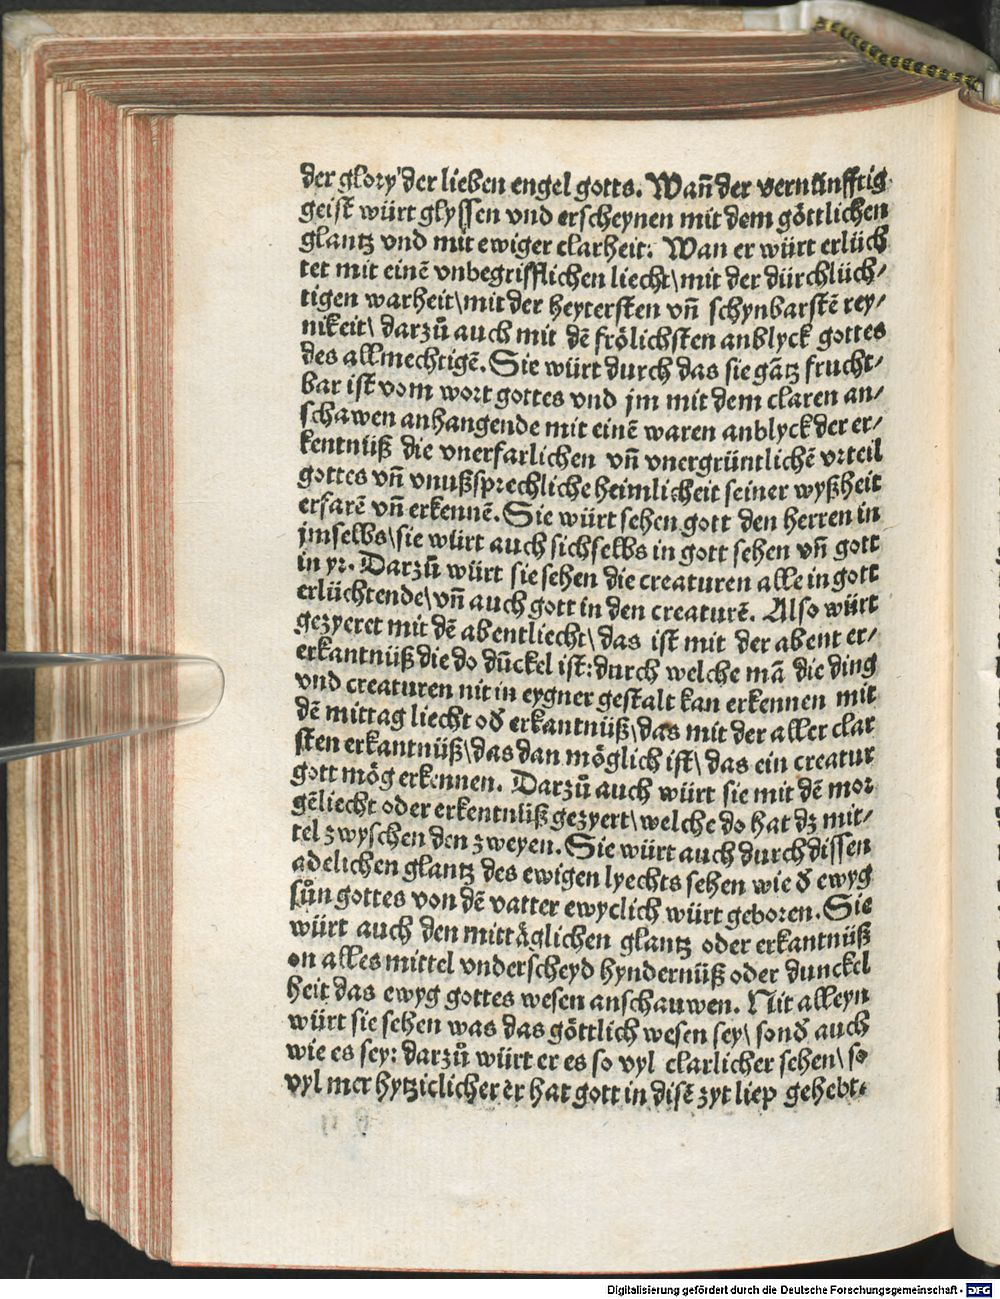 der glory der lieben engel gotts. Wañ der vernünfftig
geist würt glyssen vnd erscheynen mit dem göttlichen
glantz vnd mit ewiger clarheit: Wan er würt erlüch
tet mit einē vnbegrifflichen liecht\mit der dürchlüch/
tigen warheit\mit der heytersten vñ schynbarstē rey/
nikeit\ darzů auch mit dē frölichsten anblyck gottes
des allmechtigē. Sie würt durch das sie gātz frucht/
bar ist vom wort gottes vnd jm mit dem claren an/
schawen anhangende mit einē waren anblyck der er/
kentnüß die vnerfarlichen vñ vnergrüntlichē vrteil
gottes vñ vnußsprechliche heimlicheit seiner wyßheit
erfarē vñ erkennē. Sie würt sehen gott den herren in
jmselbs\sie würt auch sichselbs in gott sehen vñ gott
in yr. Darzů würt sie sehen die creaturen alle in gott
erlüchtende\vñ auch gott in den creaturē. Also würt
gezyeret mit dē abentliecht\das ist mit der abent er/
erkantnüß die do dūckel ist: durch welche mā die ding
vnd creaturen nit in eygner gestalt kan erkennen mit
dē mittag liecht oď erkantnüß\das mit der aller clar
sten erkantnüß\das dan möglich ist\ das ein creatur
gott mög erkennen. Darzů auch würt sie mit dē mor
gēliecht oder erkentnüß gezyert\welche do hat dz mit/
tel zwyschen den zweyen. Sie würt auch durch dissen
adelichen glantz des ewigen lyechts sehen wie ď ewyg
sůn gottes von dē vatter ewyclich würt geboren. Sie
würt auch den mittäglichen glantz oder erkantnüß
on alles mittel vnderscheyd hyndernüß oder dunckel
heit das ewyg gottes wesen anschauwen. Nit alleyn
würt sie sehen was das göttlich wesen sey\ sonď auch
wie es sey: darzů würt er es so vyl clarlicher sehen\ so
vyl mer hytziclicher er hat gott in disē zyt liep gehebt.
Digitalisierung gefördert durch die Deutsche Forschungsgemeinschaft - DFG